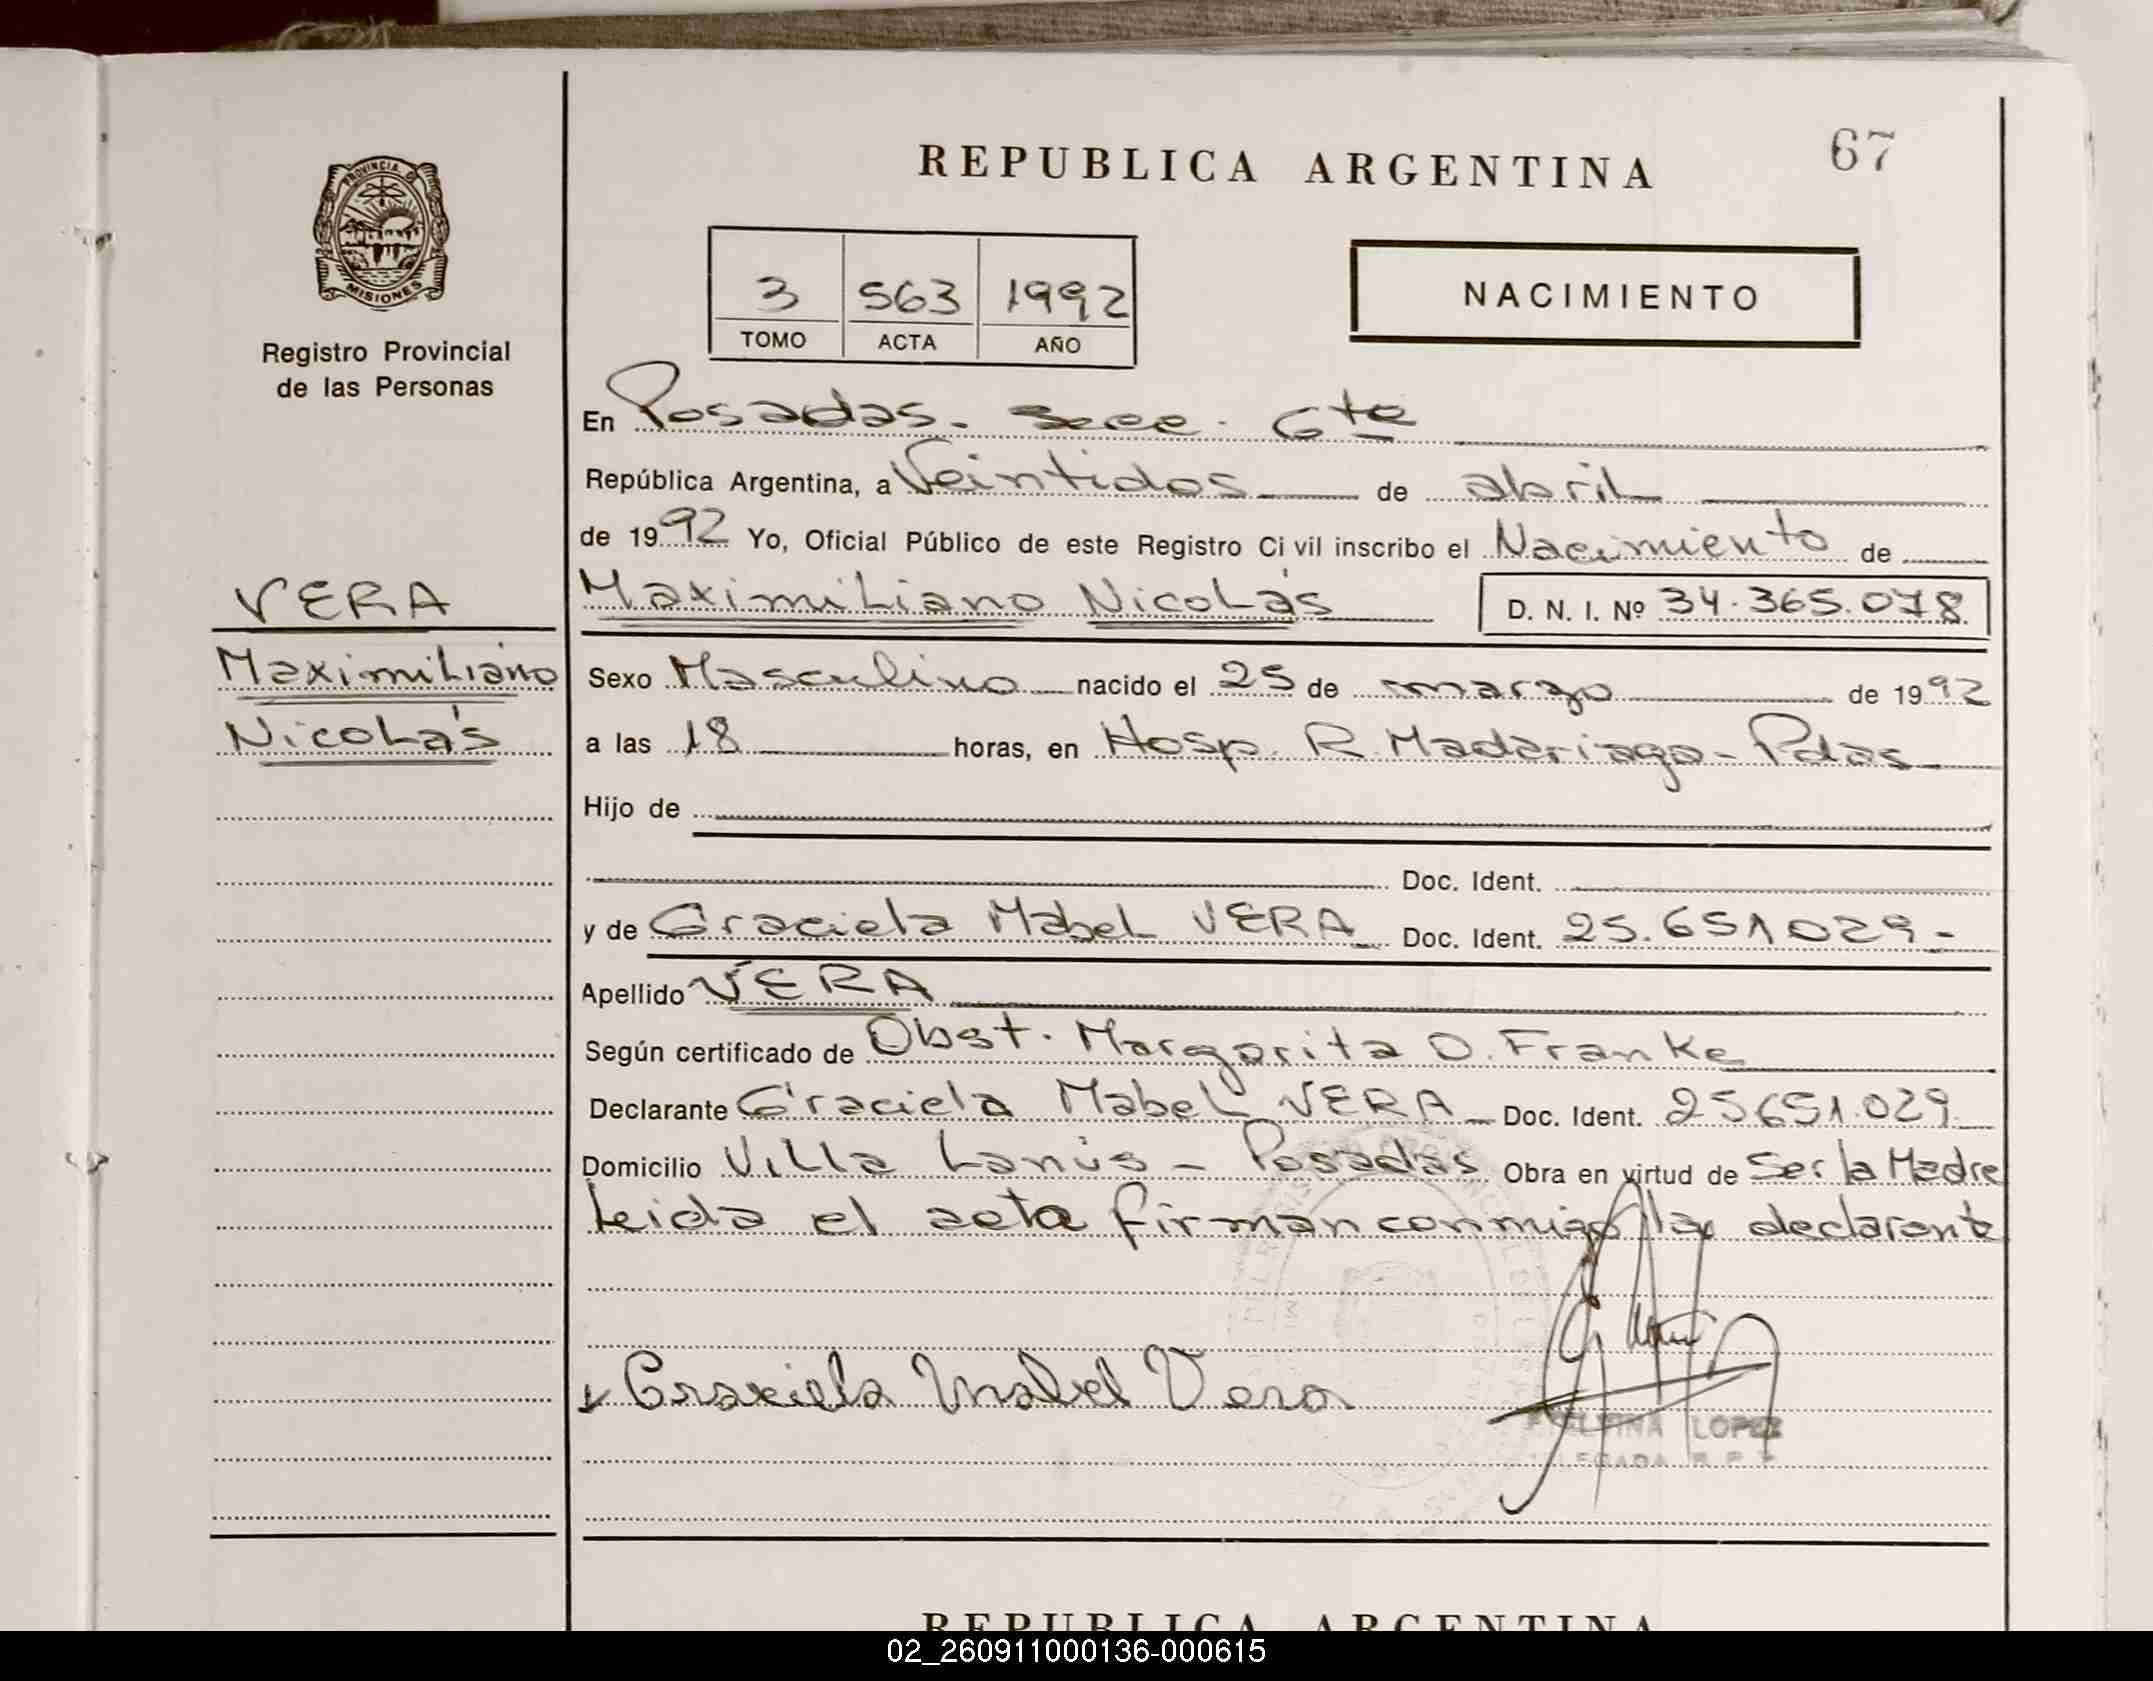 67
REPUBLICA ARGENTINA
PROVINCIA D
MISIONES
Registro Provincial
de las Personas
3 563 1992
TOMO ACTA AÑO
NACIMIENTO
En Posadas. Secc. 6ta
República Argentina, a Veintidos de abril
de 1992 Yo, Oficial Público de este Registro Civil inscribo el Nacimiento de
VERA
Maximiliano
Nicolás
Maximiliano Nicolás D. N. I. Nº 34.365.078
Sexo Masculino nacido el 25 de marzo de 1992
a las 18 horas, en Hosp. R. Madariaga - Pdas
Hijo de
Doc. Ident.
y de Graciela Mabel VERA Doc. Ident. 25.651029-
Apellido VERA
Según certificado de Obst. Margarita O. Franke
Declarante Graciela Mabel VERA Doc. Ident. 25651.029
Domicilio Villa Lanús - Posadas Obra en virtud de Ser la Madre
Leida el acta firman conmigo la declarante
Graciela Mabel Vera
LOPEZ
REPUBLICA ARGENTINA
02_260911000136-000615